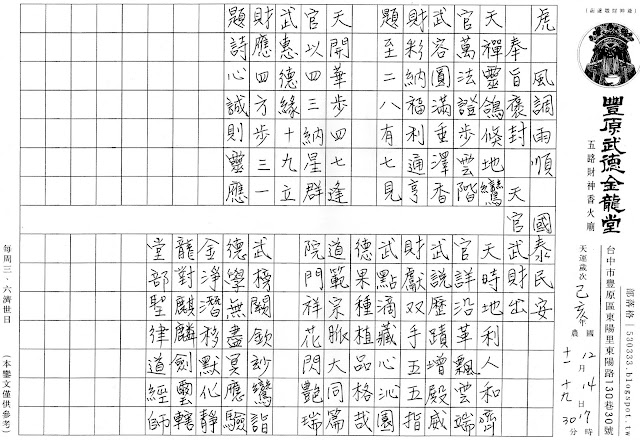 (新蓮敬浮時遊)
豐原武德金龍堂
五路財神香火廟
部落格｜530333.blogspot.tw
台中市豐原區東陽里東陽路130巷30號
天運歲次己亥年 農十一月十九日
國12月14日17時30分
虎 風調雨順 國泰民安
奉旨褒封 天官武財出
天禪靈鴿倏地鸞
官萬法證步雲階
武容圓滿垂澤香
財彩納福利通亨
題至二八有七見
天開華步四七逢
官以四三納星群
武惠德緣十九立
財應四方步三一
題詩心誠則靈應
天時地利人和齊
官詳沿革飄雲端
武說歷蹟增殿威
財獻双手五五指
武點滴藏心沁園
德果種植品格哉
道範宗脈大同篇
院門祥花閃艷瑞
武榜闕欽玅鸞詣
德學無盡冥應驗
金淨潛移默化靜
龍對麒麟劍靈轄
堂部聖律道經師
每周三．六濟世日
(本鑾文僅供參考)